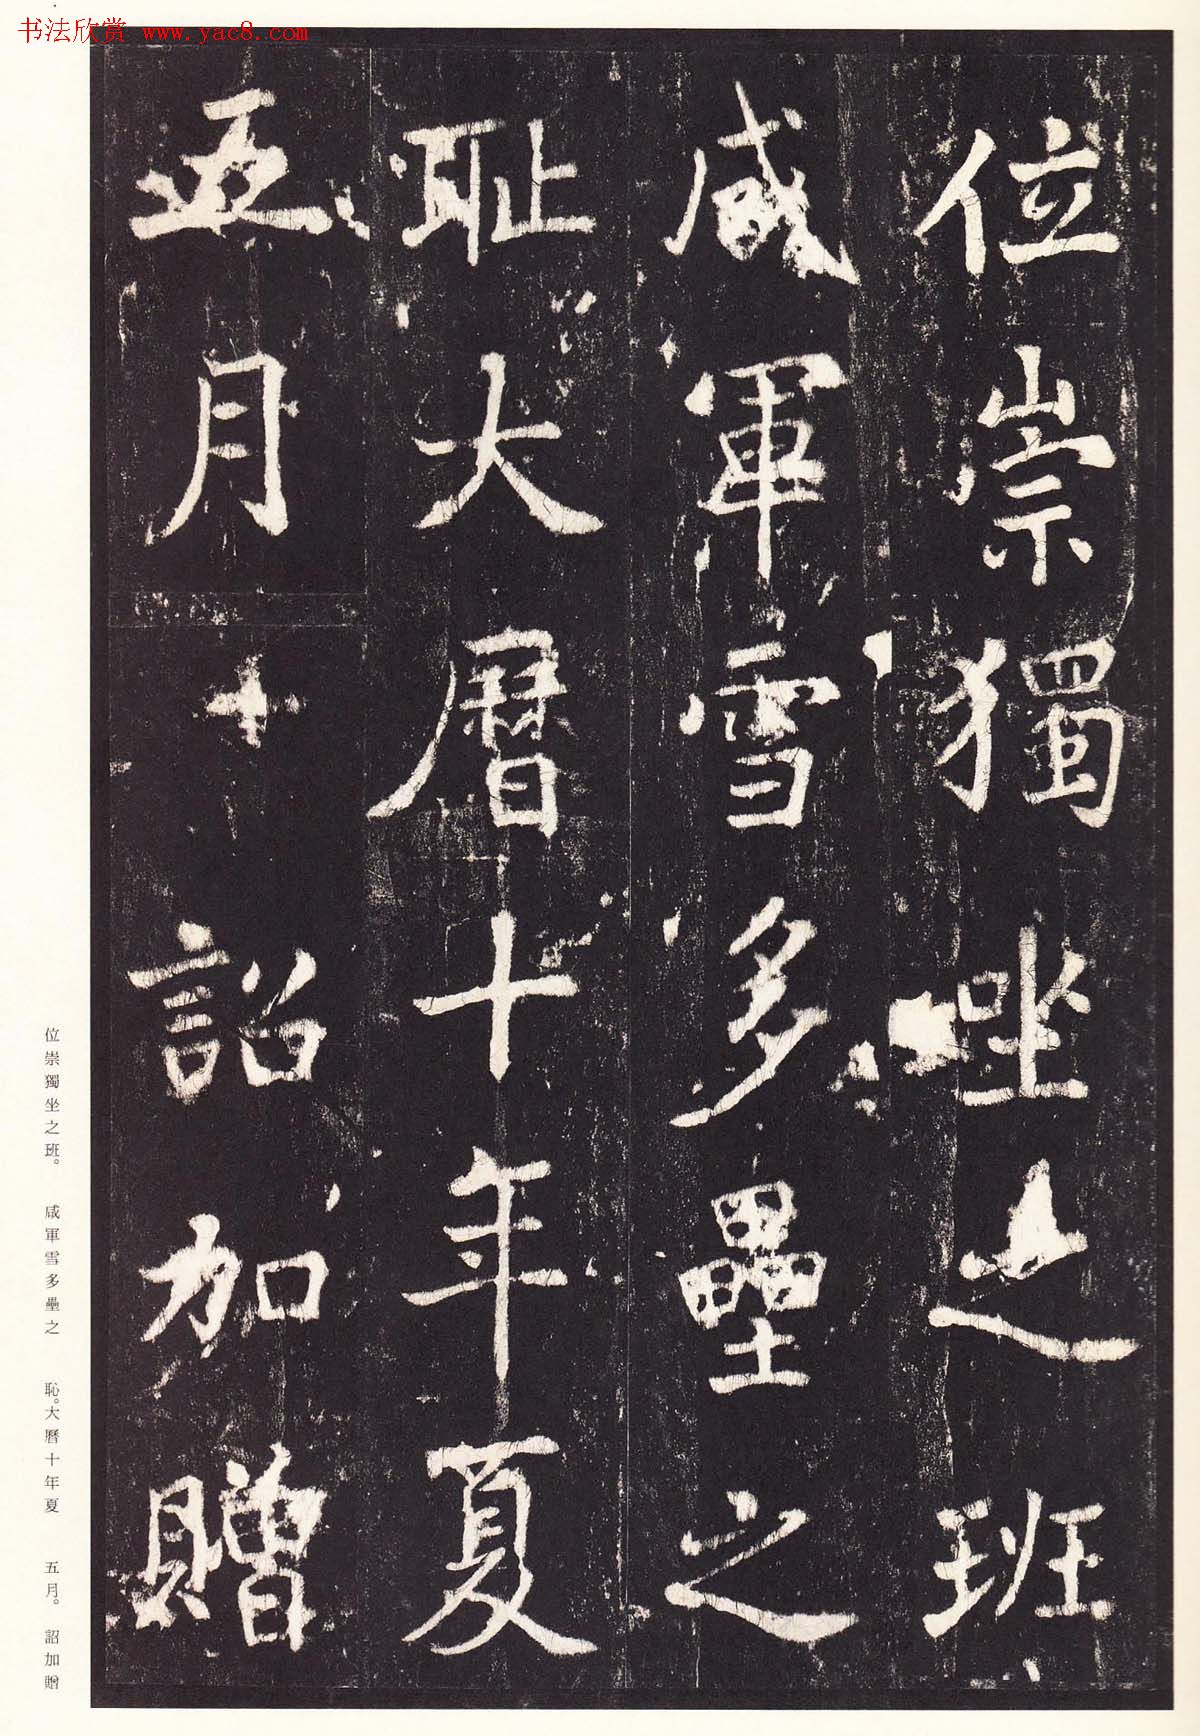 书法欣赏 www.yac8.com
位崇獨坐之班
咸軍雪多壘之
恥大曆十年夏
五月十詔加贈
位崇獨坐之班。 咸軍雪多壘之 恥。大曆十年夏 五月。 詔加贈